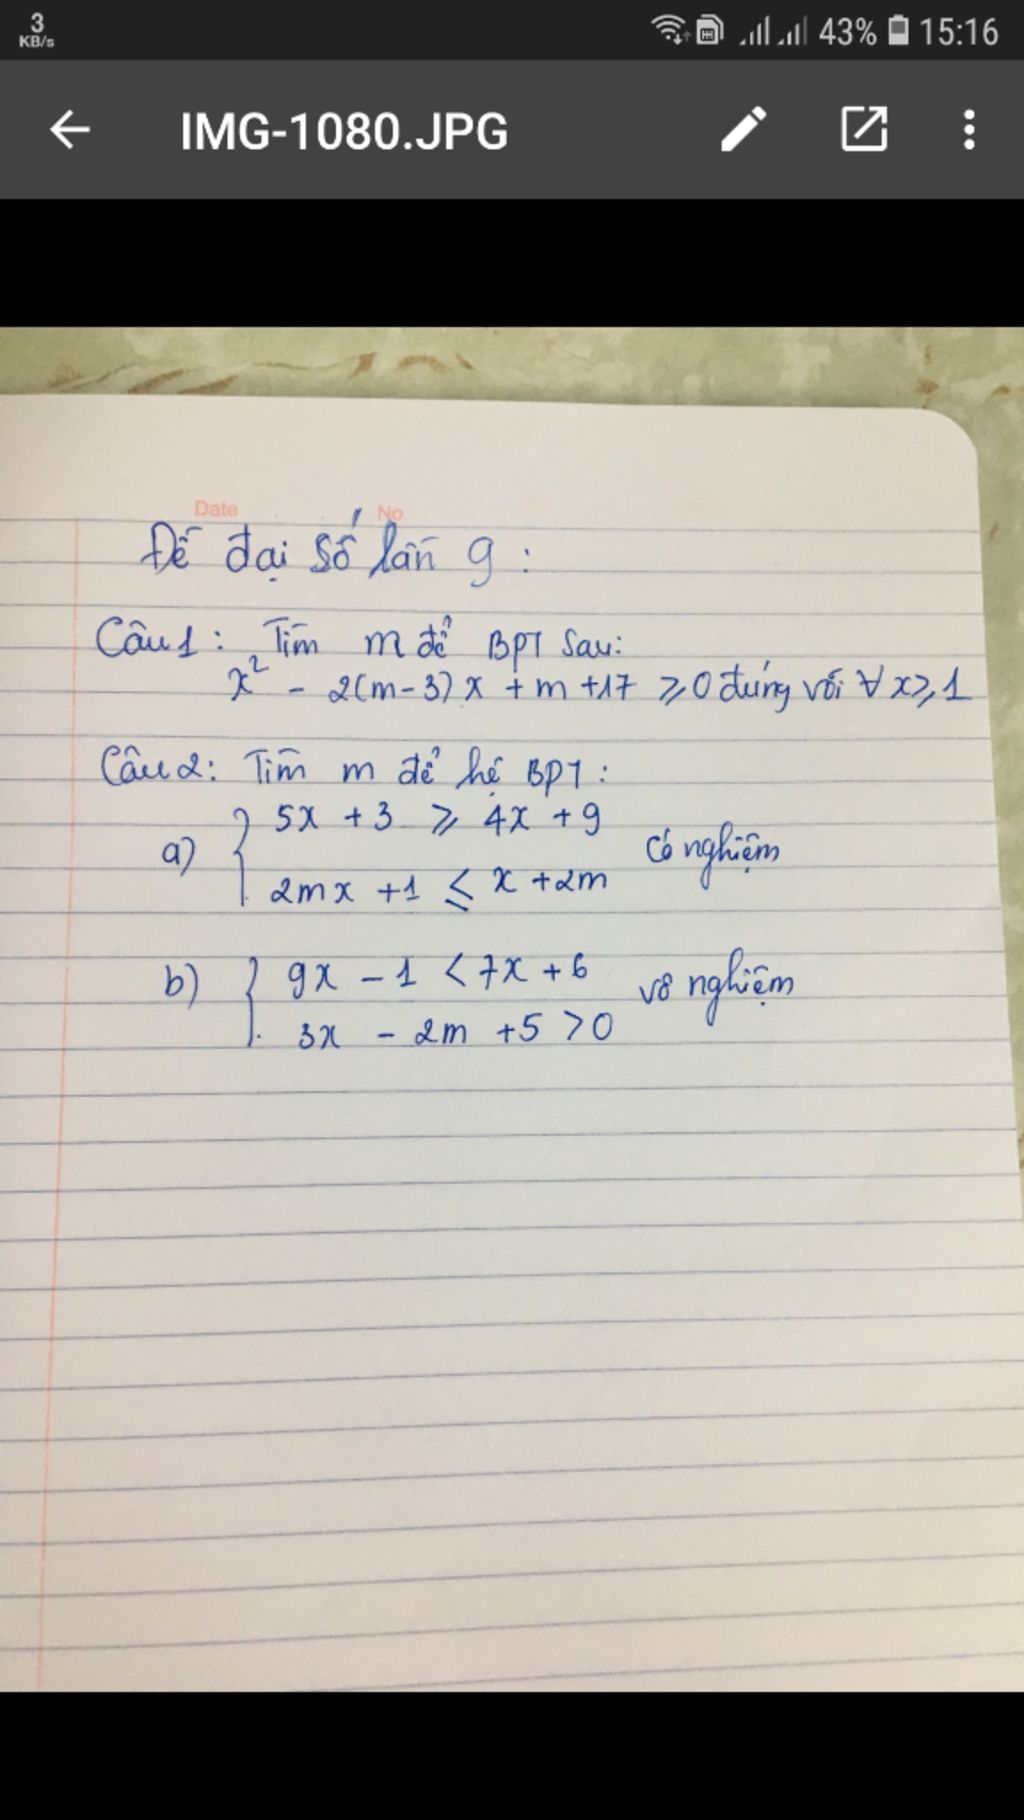 3
KB/s
43% 15:16
IMG-1080.JPG
Date No
Đề đại số lần 9:
Câu 1: Tìm m để BPT sau:
x² - 2(m-3)x + m +17 ≥ 0 đúng với ∀ x ≥ 1
Câu 2: Tìm m để hệ BPT:
a) { 5x + 3 ≥ 4x + 9
2mx + 1 ≤ x + 2m có nghiệm
b) { 9x - 1 < 7x + 6
3x - 2m + 5 > 0 vô nghiệm